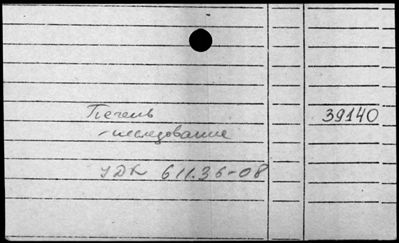 Печень 39140
- исследование
УДК 611.36-08